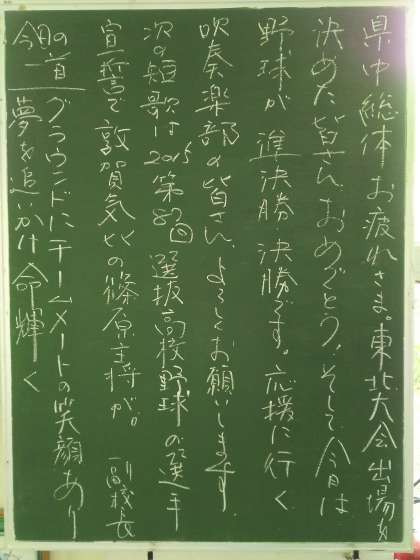 県中総体お疲れさま。東北大会出場を
決めた皆さんおめでとう！そして今日は
野球が準決勝・決勝です。応援に行く
吹奏楽部の皆さんよろしくお願いします。
次の短歌は2015第87回選抜高校野球の選手
宣誓で敦賀気比の篠原主将が。 副校長
今日の一首 グラウンドにチームメートの笑顔あり
夢を追いかけ命輝く